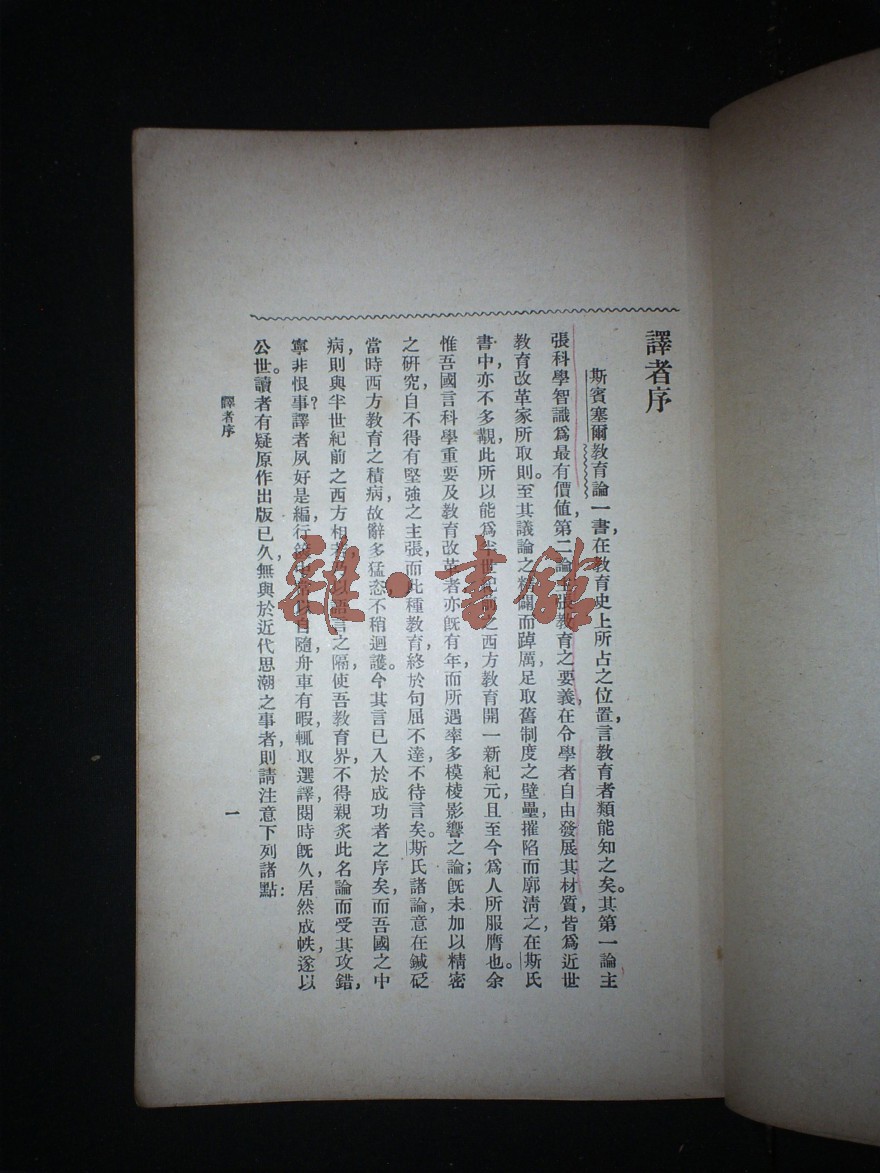 譯者序
斯賓塞爾教育論一書，在教育史上所占之位置，言教育者類能知之矣。其第一論主
張科學智識爲最有價値，第二論主張教育之要義，在令學者自由發展其材質，皆爲近世
教育改革家所取則。至其議論之精闢而踔厲，足取舊制度之壁壘，摧陷而廓淸之，在斯氏
書中亦不多覯，此所以能爲半世紀前之西方教育開一新紀元，且至今爲人所服膺也。余
惟吾國言科學重要及教育改革者亦旣有年，而所遇率多模棱影響之論；旣未加以精密
之硏究，自不得有堅強之主張，而此種教育，終於句屈不達，不待言矣。斯氏諸論，意在鍼砭
當時西方教育之積病，故辭多猛恣，不稍迴護。今其言已入於成功者之序矣，而吾國之中
病，則與半世紀前之西方相若，乃以語言之隔，使吾教育界，不得親炙此名論而受其攻錯，
寧非恨事？譯者夙好是編，行以自隨，舟車有暇，輒取選譯，閱時旣久，居然成帙，遂以
公世。讀者有疑原作出版已久，無與於近代思潮之事者，則請注意下列諸點：
譯者序
一
雜·書館